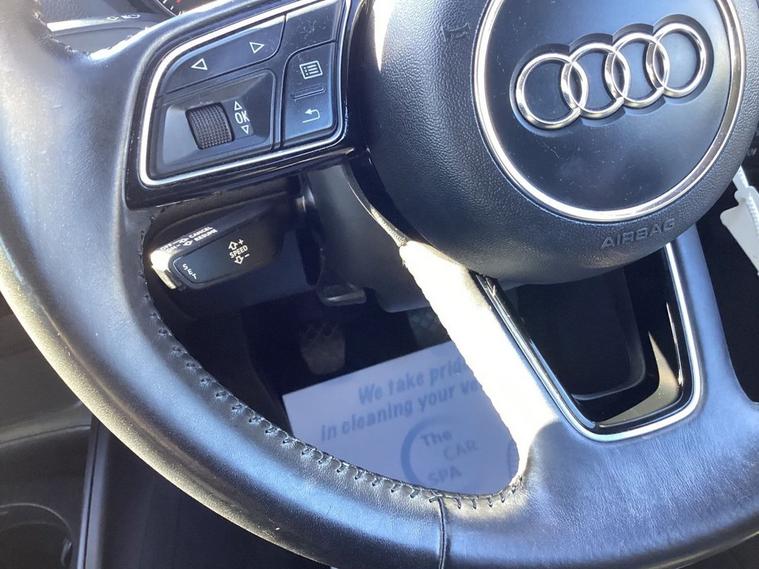 OK
CANCEL
RESUME
SPEED
SET
AIRBAG
We take pride
in cleaning your
The
CAR
SPA